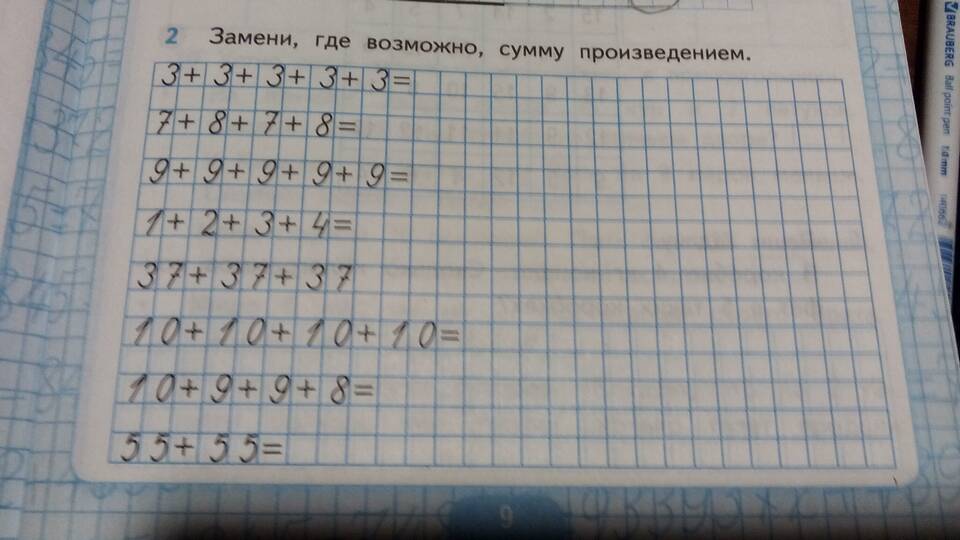 2 Замени, где возможно, сумму произведением.
3+3+3+3+3=
7+8+7+8=
9+9+9+9+9=
1+2+3+4=
37+37+37
10+10+10+10=
10+9+9+8=
55+55=
9
BRAUBERG Ball point pen 1.0 mm